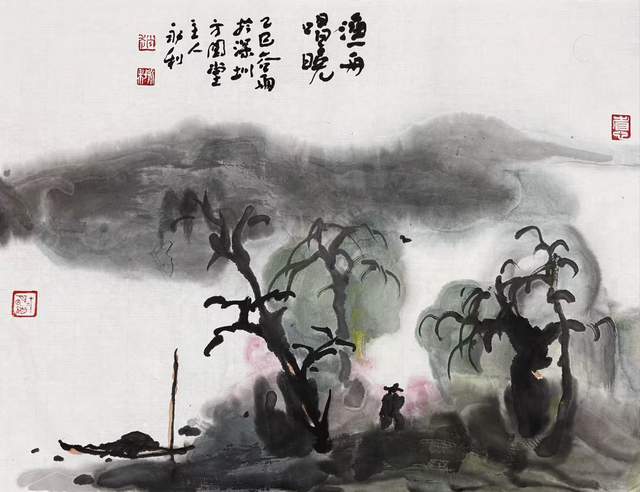 渔舟
唱晚
乙巳谷雨
於深圳
方圆堂
主人
永利